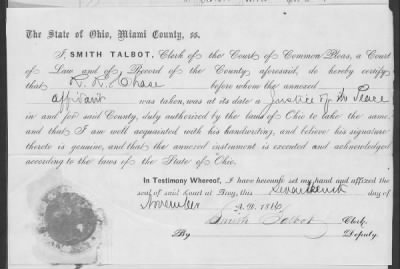 The State of Ohio, Miami County, ss.
I, SMITH TALBOT, Clerk of the Court of Common Pleas, a Court
of Law and of Record of the County aforesaid, do hereby certify
that R. R. Chase before whom the annexed
affidavit was taken, was at its date a Justice of the Peace
in and for said County, duly authorized by the laws of Ohio to take the same,
and that I am well acquainted with his handwriting, and believe his signature
thereto is genuine, and that the annexed instrument is executed and acknowledged
according to the laws of the State of Ohio.
In Testimony Whereof, I have hereunto set my hand and affixed the
seal of said Court at Troy, this Seventeenth day of
November A. D. 1866
Smith Talbot Clerk.
By Deputy.